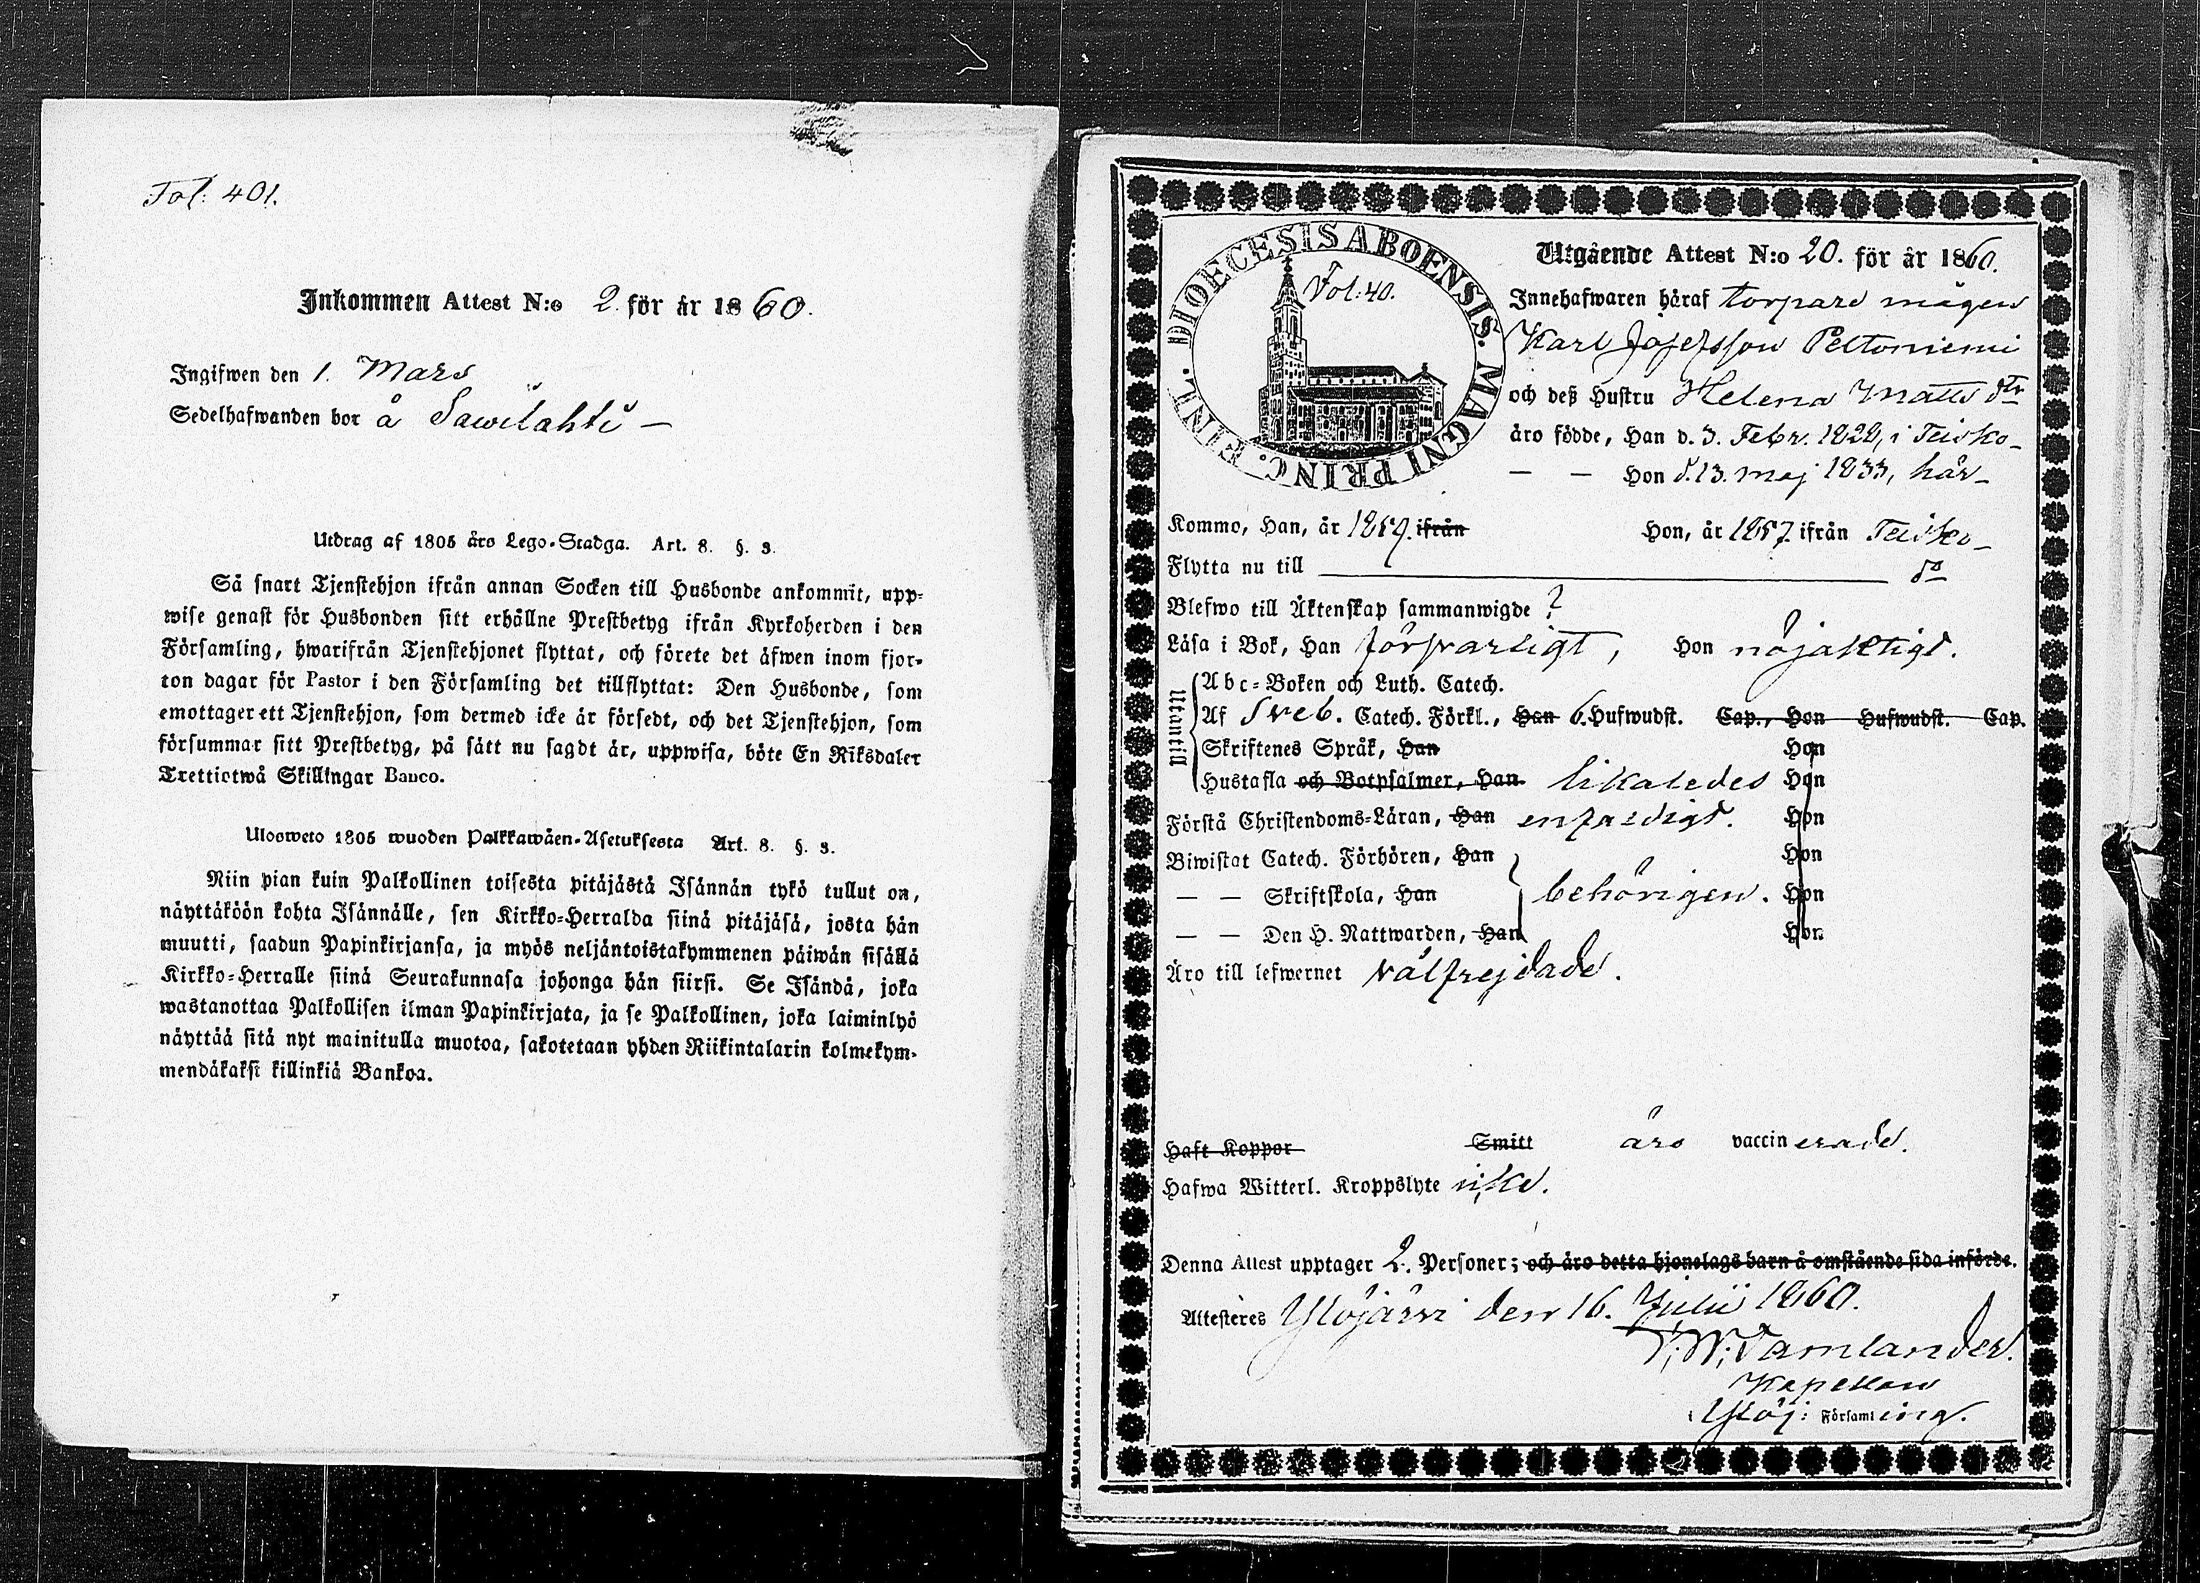 Fol: 401.
Inkommen Attest N:o 2. för år 1860.
Ingifwen den 1. Mars
Sedelhafwanden bor å Sawilahti —
Utdrag af 1805 års Lego-Stadga. Art. 8. §. 3.
Så snart Tjenstehjon ifrån annan Socken till Husbonde ankommit, upp-
wise genast för Husbonden sitt erhållne Prestbetyg ifrån Kyrkoherden i den
Församling, hwarifrån Tjenstehjonet flyttat, och förete det äfwen inom fjor-
ton dagar för Pastor i den Församling det tillflyttat: Den Husbonde, som
emottager ett Tjenstehjon, som dermed icke är försedt, och det Tjenstehjon, som
försummar sitt Prestbetyg, på sätt nu sagdt är, uppwisa, böte En Riksdaler
Trettiotwå Skillingar Banco.
Ulosweto 1805 wuoden Palkkawäen-Asetuksesta Art. 8. §. 3.
Niin pian kuin Palkollinen toisesta pitäjästä Isännän tykö tullut on,
näyttäköön kohta Isännälle, sen Kirkko-Herralda siinä pitäjäsä, josta hän
muutti, saadun Papinkirjansa, ja myös neljäntoistakymmenen päiwän sisällä
Kirkko-Herralle siinä Seurakunnasa johonga hän siirsi. Se Isändä, joka
wastanottaa Palkollisen ilman Papinkirjata, ja se Palkollinen, joka laiminlyö
näyttää sitä nyt mainitulla muotoa, sakotetaan yhden Riikintalarin kolmekym-
mendäkaksi killinkiä Bankoa.
DIOECESIS ABOENSIS. MAGNI PRINC. FINL.
Fol: 40.
Utgående Attest N:o 20. för år 1860.
Innehafwaren häraf torpare mågen
Karl Josefsson Peltoniemi
och deß Hustru Helena Matts dtr
äro födde, Han d. 3. Febr. 1828, i Teisko
— — Hon d. 13. maj 1833, här
Kommo, Han, år 1859. ifrån Hon, år 1857. ifrån Teisko
Flytta nu till do
Blefwo till Äktenskap sammanwigde ?
Läsa i Bok, Han försvarligt, Hon nöjaktigt.
Utantill
Abc-Boken och Luth. Catech.
Af Sveb. Catech. Förkl., Han 6. Hufwudst. Cap., Hon Hufwudst. Cap.
Skriftenes Språk, Han Hon
Hustafla och Botpsalmer, Han likaledes Hon
Förstå Christendoms-Läran, Han enfaldigt. Hon
Biwistat Catech. Förhören, Han Hon
— — Skriftskola, Han behörigen. Hon
— — Den H. Nattwarden, Han Hon
Äro till lefwernet välfrejdade.
Haft Koppor Smitt äro vaccinerade.
Hafwa Witterl. Kroppslyte icke.
Denna Attest upptager 2. Personer; och äro detta hjonelags barn å omstående sida införde.
Attesteres Ylöjärvi den 16. Julii 1860.
Tamlander.
Kapellan
i Ylöj: Församling.